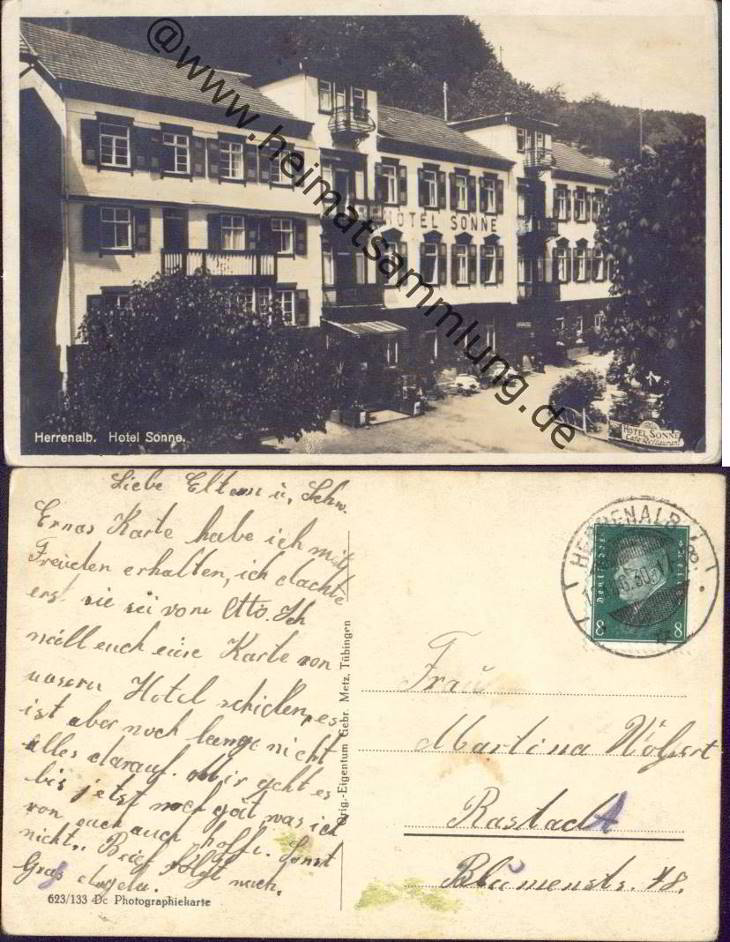 @www.heimatsammlung.de
HOTEL SONNE
Herrenalb. Hotel Sonne.
HOTEL SONNE
Café Restaurant
Liebe Eltern u, Schw.
Ernas Karte habe ich mit
Freuden erhalten, ich dachte
erst sie sei vom Otto. Ich
will euch eine Karte von
unserm Hotel schicken, es
ist aber noch lange nicht
alles darauf. Mir geht es
bis jetzt noch gut was ich
von euch auch hoffe. Sonst
nichts. Brief folgt nach.
Grus
623/133 Dc Photographiekarte
Orig.-Eigentum Gebr. Metz, Tübingen
HERRENALB
30
Deutsches Reich
8 8
Frau
Martina
Rastadt
Blumenstr. 18.